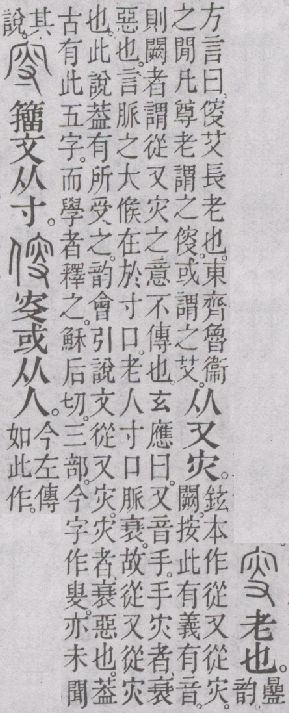 叜老也。疊韵
方言曰。傁艾長老也。東齊魯衞
之閒凡尊老謂之傁。或謂之艾。
从又灾。
鉉本作從又從灾。
闕。按此有義有音。
則闕者謂從又灾之意不傳也。玄應曰。又音手。手灾者、衰
惡也。言脈之大候在於寸口。老人寸口脈衰。故從又從灾
也。此說葢有所受之。韵會引說文從又灾。灾者、衰惡也。葢
古有此五字。而學者釋之。穌后切。三部。今字作叟。亦未聞
其說。
籒文从寸。傁叜或从人。今左傳如此作。